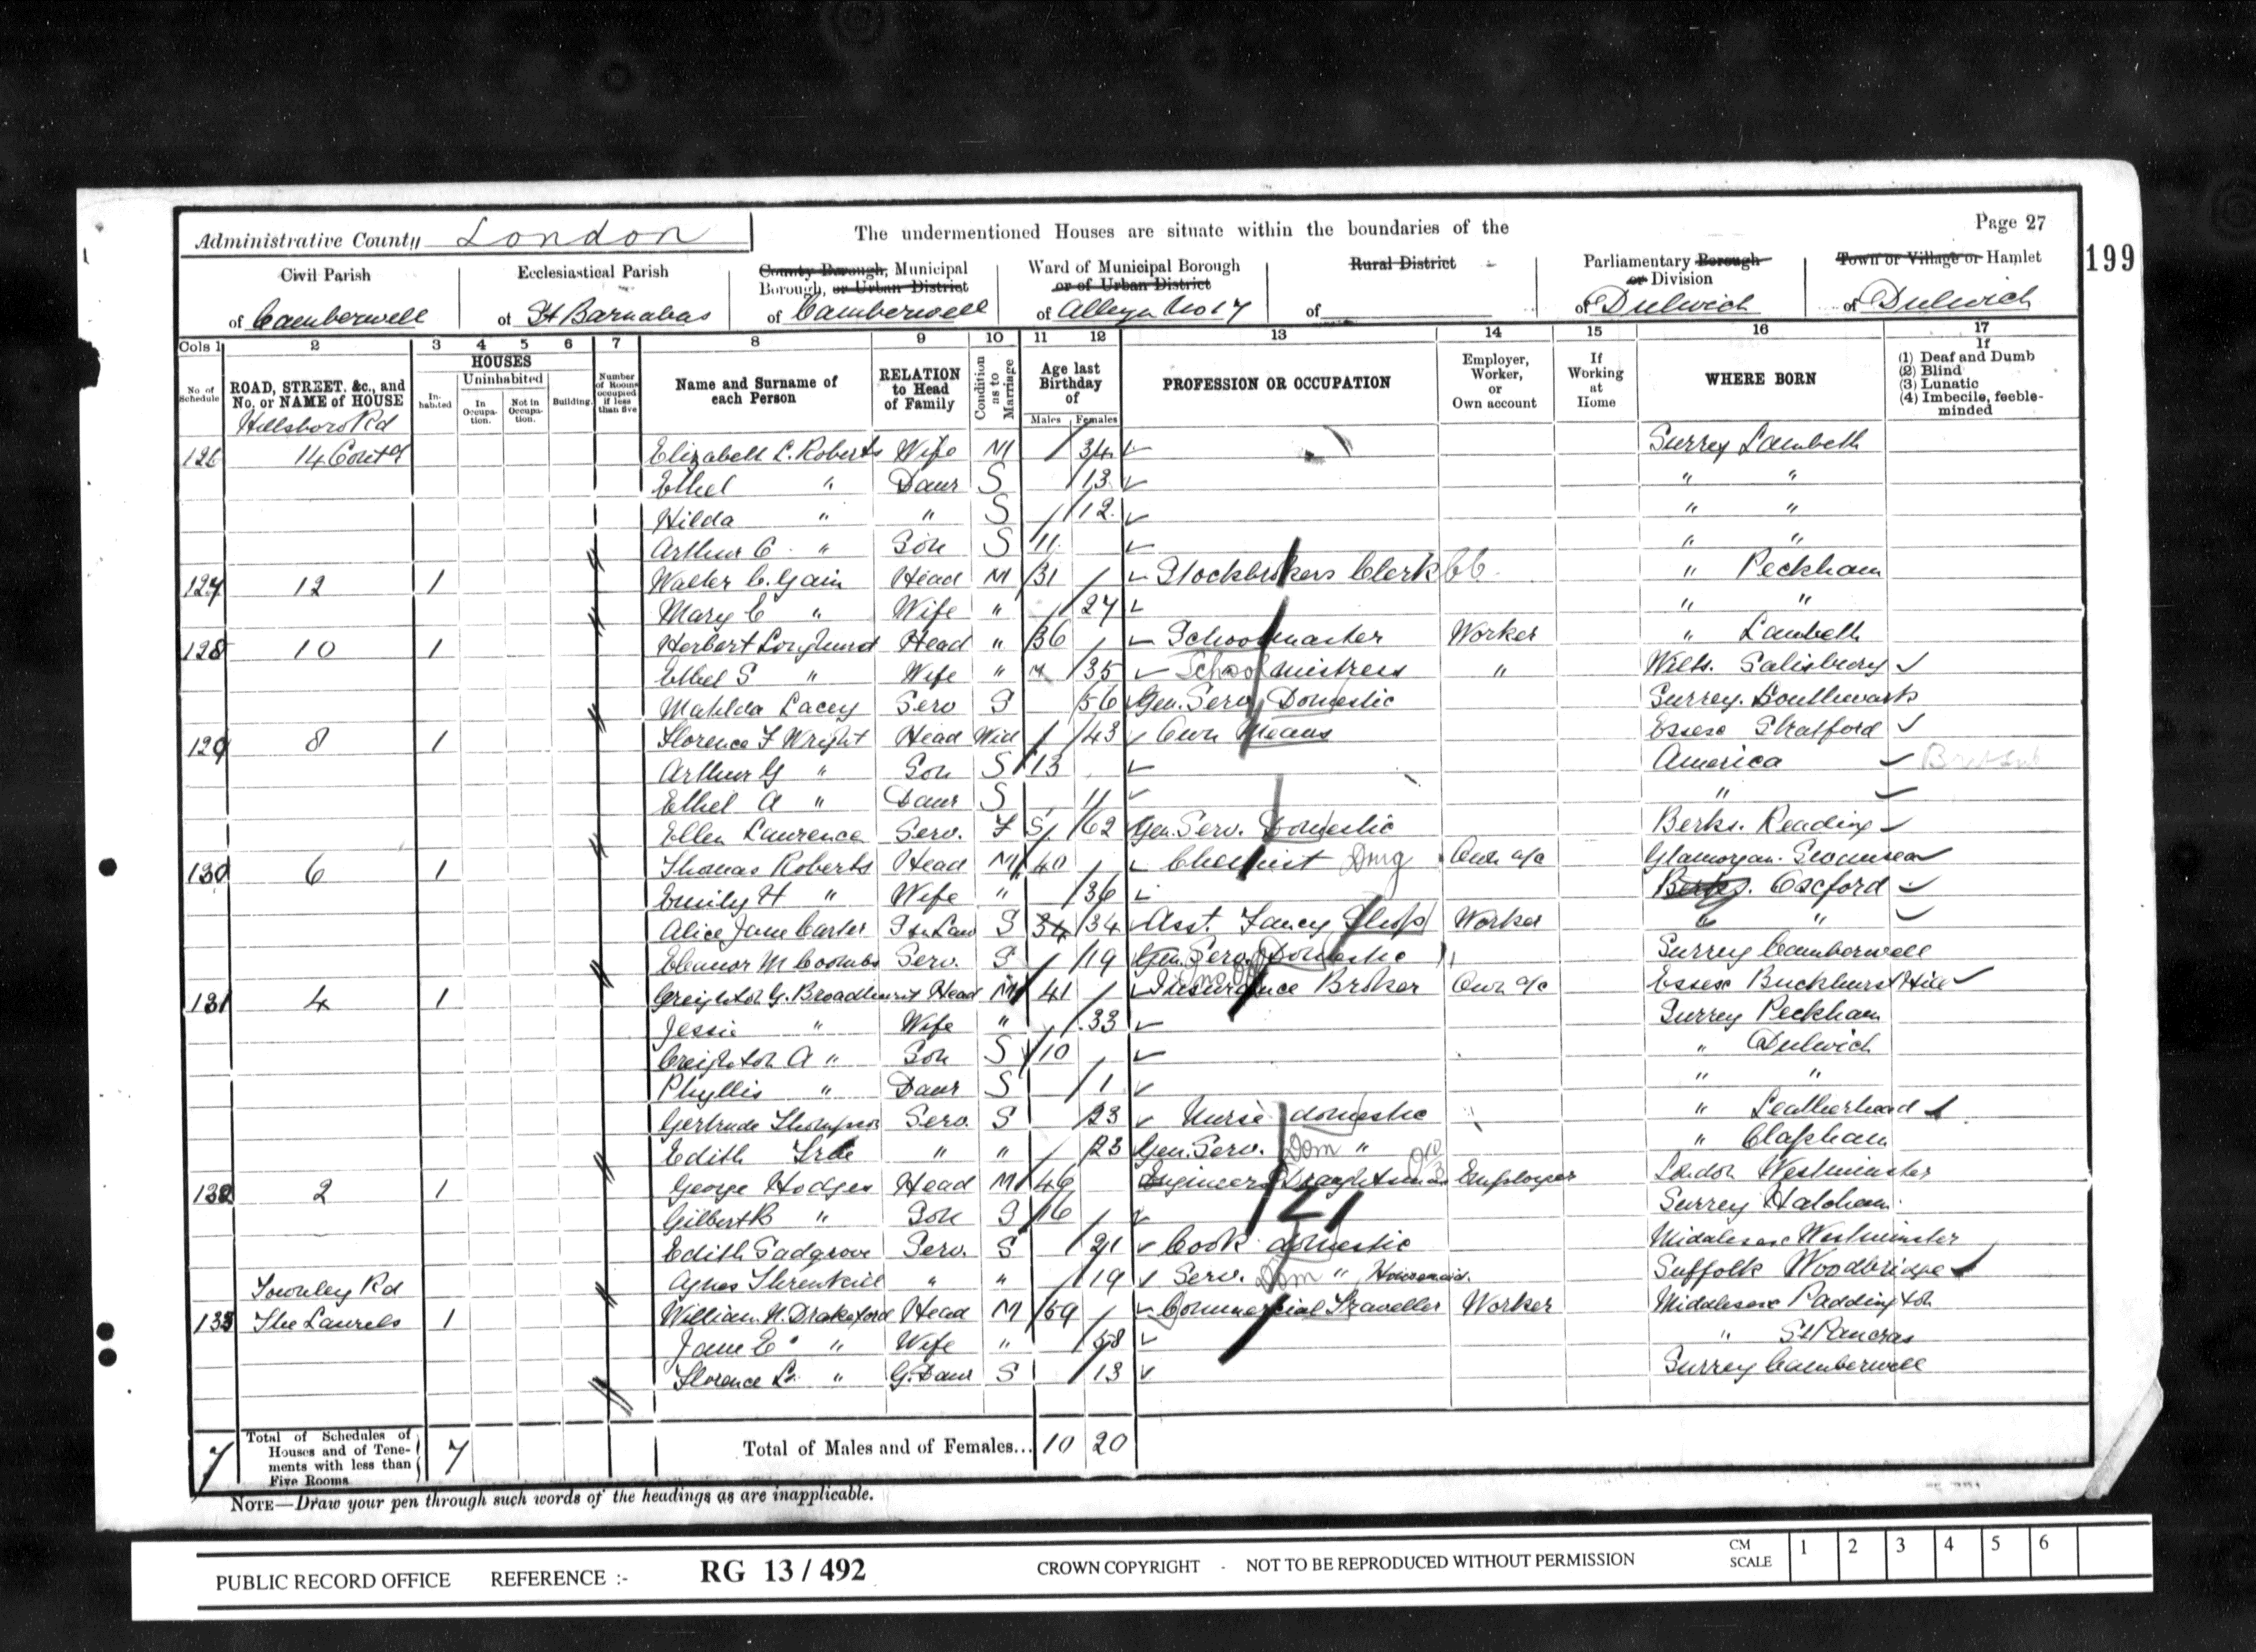 Administrative County London The undermentioned Houses are situate within the boundaries of the Page 27
199
Civil Parish of Camberwell
Ecclesiastical Parish of St Barnabas
County Borough, Municipal Borough, or Urban District of Camberwell
Ward of Municipal Borough or of Urban District of Alleyn No 17
Rural District of
Parliamentary Borough or Division of Dulwich
Town or Village or Hamlet of Dulwich
Cols 1 2 3 4 5 6 7 8 9 10 11 12 13 14 15 16 17
No. of Schedule
ROAD, STREET, &c., and No. or NAME of HOUSE
HOUSES
Inhabited
Uninhabited
In Occupation.
Not in Occupation.
Building.
Number of Rooms occupied if less than five
Name and Surname of each Person
RELATION to Head of Family
Condition as to Marriage
Age last Birthday of
Males Females
PROFESSION OR OCCUPATION
Employer, Worker, or Own account
If Working at Home
WHERE BORN
If
(1) Deaf and Dumb
(2) Blind
(3) Lunatic
(4) Imbecile, feeble-minded
Hillsboro Rd
126 14 Contd Elizabeth L. Roberts Wife M 34 Surrey Lambeth
Ethel " Daur S 13 " "
Hilda " " S 12 " "
Arthur C. " Son S 11 " "
127 12 1 Walter C. Gain Head M 31 Stockbrokers Clerk " Peckham
Mary E " Wife " 27 " "
128 10 1 Herbert Longhurst Head " 36 Schoolmaster Worker " Lambeth
Ethel S " Wife " 35 Schoolmistress " Wilts. Salisbury
Matilda Lacey Serv S 56 Gen. Serv Domestic Surrey. Southwark
129 8 1 Florence F Wright Head Wid 43 Own Means Essex Stratford
Arthur G " Son S 13 America
Ethel A " Daur S 11 "
Ellen Laurence Serv. S 62 Gen. Serv. Domestic Berks. Reading
130 6 1 Thomas Roberts Head M 40 Chemist Own a/c Glamorgan. Swansea
Emily H " Wife " 36 Berks. Oxford
Alice Jane Carter S in Law S 34 34 Asst. Fancy Shop Worker " "
Eleanor M Coombs Serv. S 19 Gen. Serv. Domestic Surrey Camberwell
131 4 1 Creighton G. Broadhurst Head M 41 Insurance Broker Own a/c Essex Buckhurst Hill
Jessie " Wife " 33 Surrey Peckham
Creighton A " Son S 10 " Dulwich
Phyllis " Daur S 1 " "
Gertrude Thompson Serv. S 23 Nurse domestic " Leatherhead
Edith " " 23 Gen. Serv. Dom " " Clapham
132 2 1 George Hodges Head M 46 Engineers Draughtsman Employer London Westminster
Gilbert B " Son S 16 Surrey Hatcham.
21
Edith Sadgrove Serv. S 21 Cook domestic Middlesex Westminster
Agnes Threnkill " " 19 Serv. Dom " Housemaid. Suffolk Woodbridge
Townley Rd
133 The Laurels 1 William H. Drakeford Head M 59 Commercial Traveller Worker Middlesex Paddington
Jane E " Wife " 58 " St Pancras
Florence L. " G. Daur S 13 Surrey Camberwell
7 Total of Schedules of Houses and of Tenements with less than Five Rooms 7 Total of Males and of Females... 10 20
NOTE—Draw your pen through such words of the headings as are inapplicable.
PUBLIC RECORD OFFICE REFERENCE :- RG 13 / 492 CROWN COPYRIGHT - NOT TO BE REPRODUCED WITHOUT PERMISSION CM SCALE 1 2 3 4 5 6